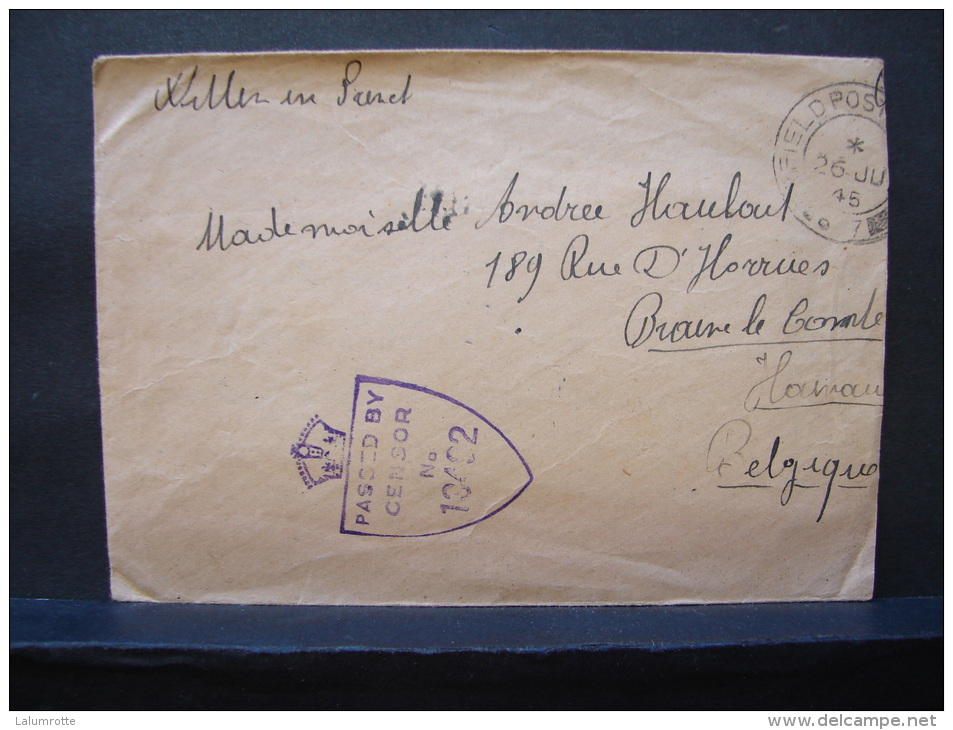 in
FIELD POST
*
26 JU
45
7
Mademoiselle Andree
189 Rue D'Horrues
Braine le Comte
Hainau
Belgique
PASSED BY
CENSOR
No
Lalumrotte
www.delcampe.net